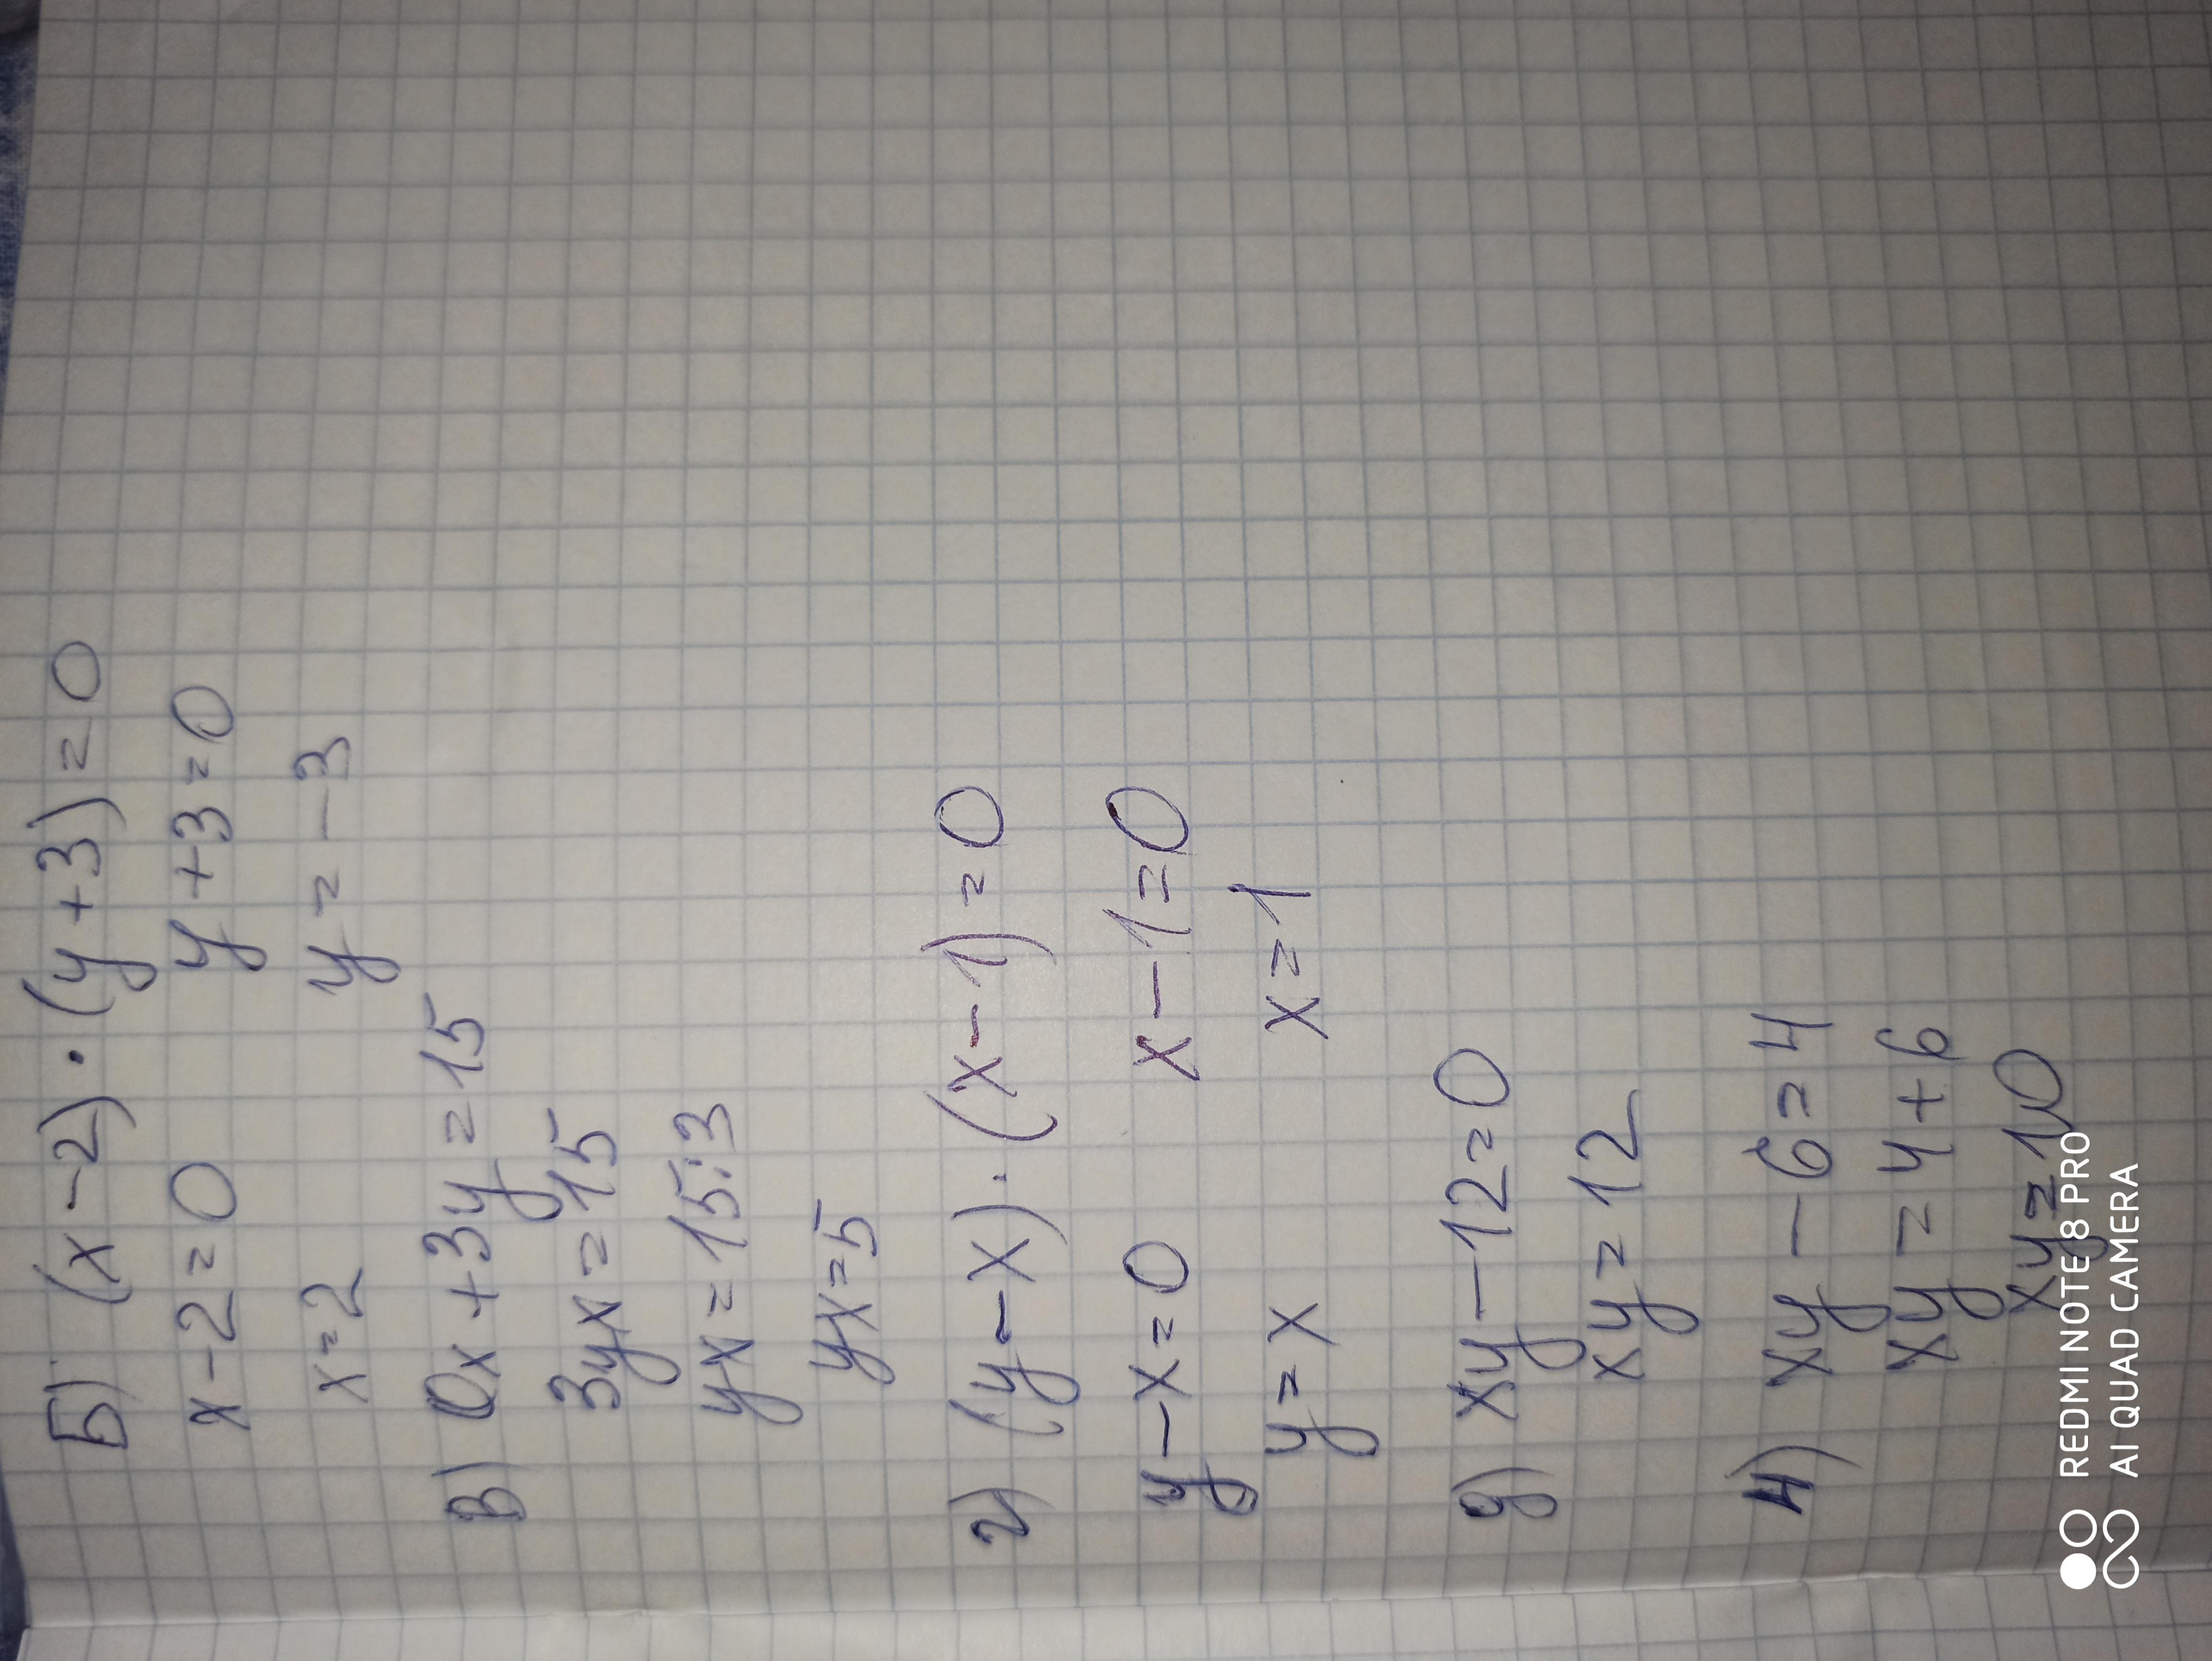 Б) (x-2)·(y+3)=0
x-2=0 y+3=0
x=2 y=-3
В) 0x+3y=15
3yx=15
yx=15:3
yx=5
г) (y-x)·(x-1)=0
y-x=0 x-1=0
y=x x=1
д) xy-12=0
xy=12
4) xy-6=4
xy=4+6
xy=10
REDMI NOTE 8 PRO
AI QUAD CAMERA